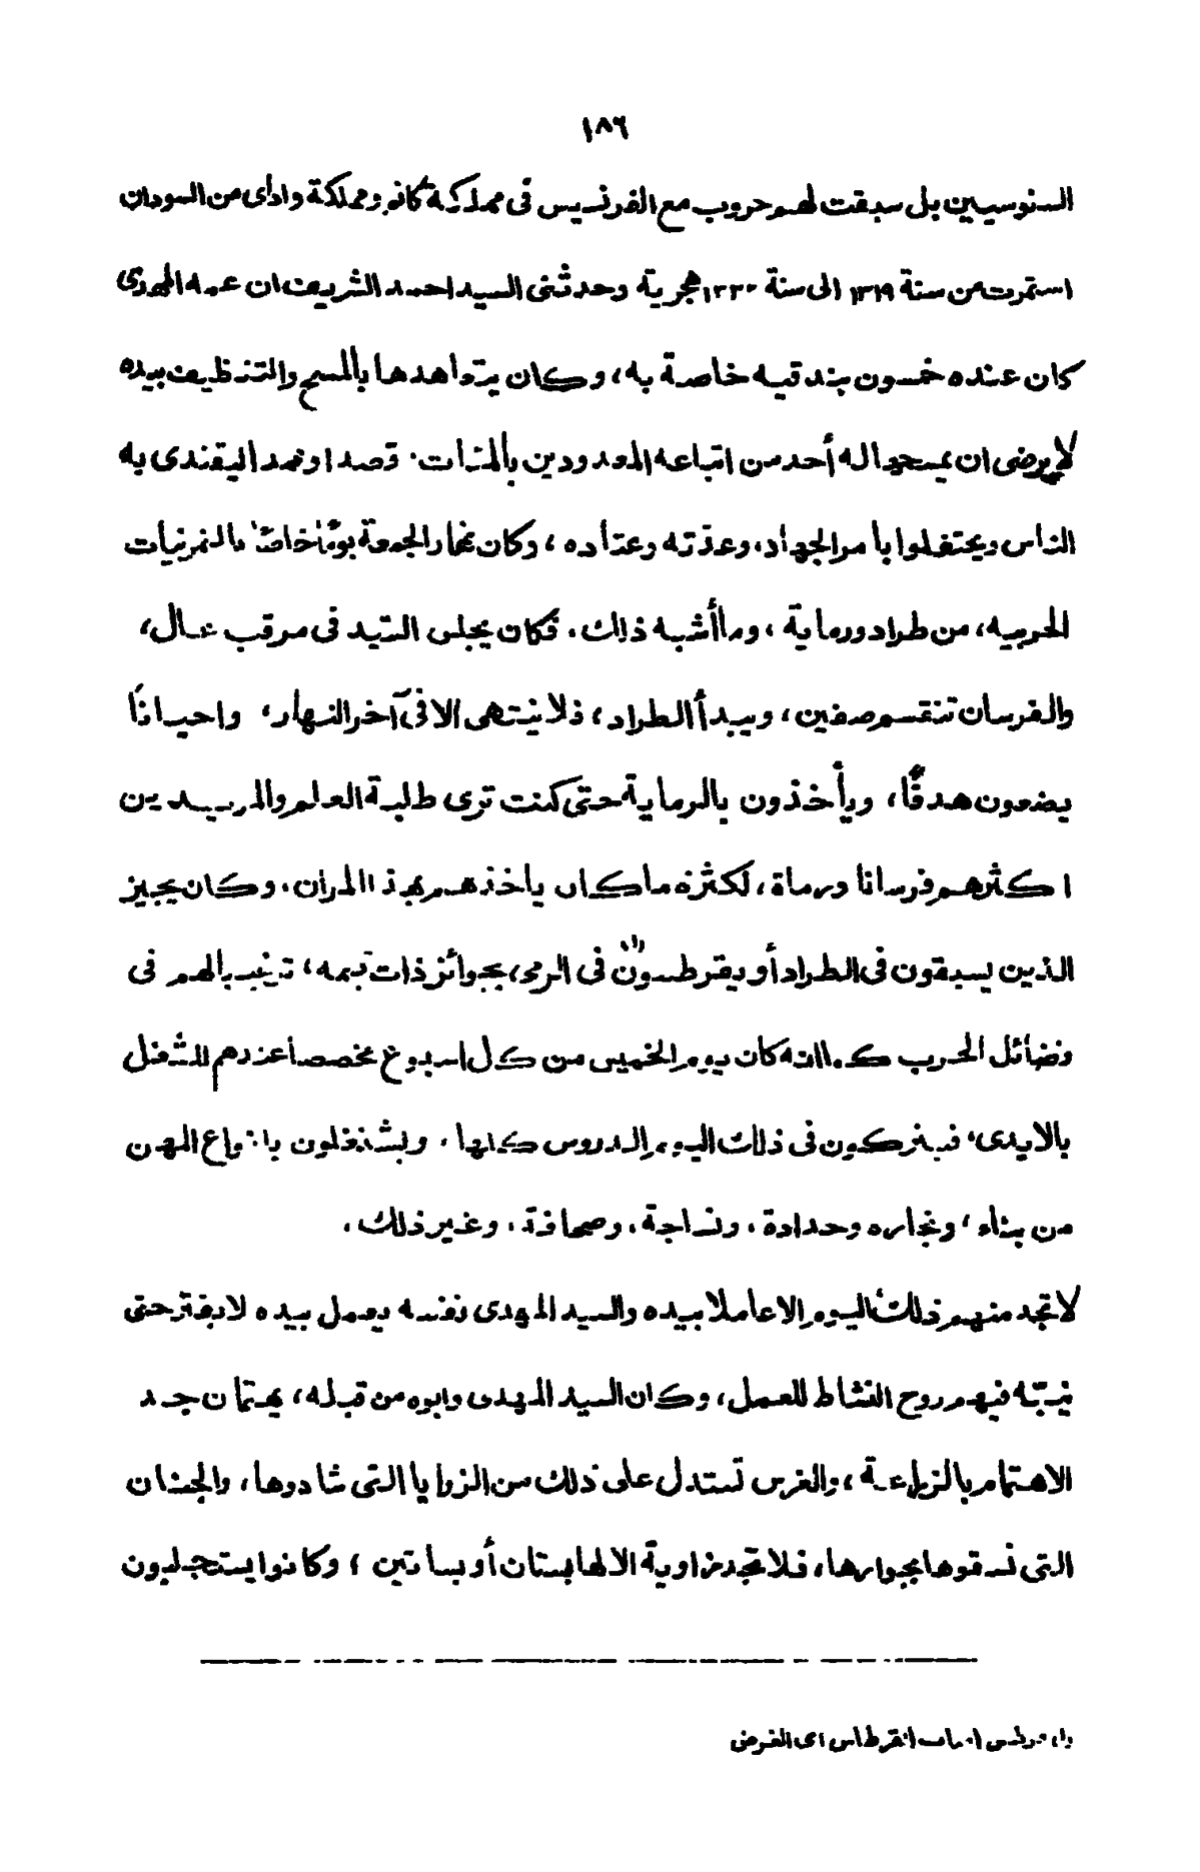 ١٨٦
السنوسيين بل سبقت لهم حروب مع الفرنسيس فى مملكة كانم ومملكة واداى من السودان
استمرت من سنة ١٣١٩ الى سنة ١٣٣٠ هجرية وحدثنى السيد احمد الشريف ان عمه المهدى
كان عنده خمسون بندقيه خاصة به، وكان يتعاهدها بالمسح والتنظيف بيده
لا يرضى ان يمسحها له أحد من اتباعه المعدودين بالمئات. قصدا وعمدا ليقتدى به
الناس ويحتفلوا بأمر الجهاد، وعدته وعتاده، وكان نهار الجمعة يوما خاصا بالتمرينات
الحربيه، من طراد ورماية، وما أشبه ذلك. فكان يجلس السيد فى مرقب عال،
والفرسان تنقسم صفين، ويبدأ الطراد، فلا ينتهى الا فى آخر النهار، واحيانًا
يضعون هدفًا، ويأخذون بالرماية حتى كنت ترى طلبة العلم والمريدين
اكثرهم فرسانا ورماة، لكثرة ما كان يأخذهم بهذا المران. وكان يجيز
الذين يسبقون فى الطراد أو يقرطسون (١) فى الرمى، بجوائز ذات قيمه، ترغيبا لهم فى
فضائل الحرب كما انه كان يوم الخميس من كل اسبوع مخصصا عندهم للشغل
بالايدى، فيتركون فى ذلك اليوم الدروس كلها. ويشتغلون بانواع المهن
من بناء، ونجاره وحدادة، ونساجة، وصحافة، وغير ذلك.
لا تجد منهم ذلك اليوم الا عاملا بيده والسيد المهدى نفسه يعمل بيده لا يفتر حتى
ينبّه فيهم روح النشاط للعمل، وكان السيد المهدى وابوه من قبله، يهتمان جد
الاهتمام بالزراعة، والغرس تستدل على ذلك من الزوايا التى شادوها، والجنان
التى نسقوها بجوارها، فلا تجد زاوية الا لها بستان أو بساتين، وكانوا يستجلبون
(١) قرطس اصاب القرطاس اى الغرض